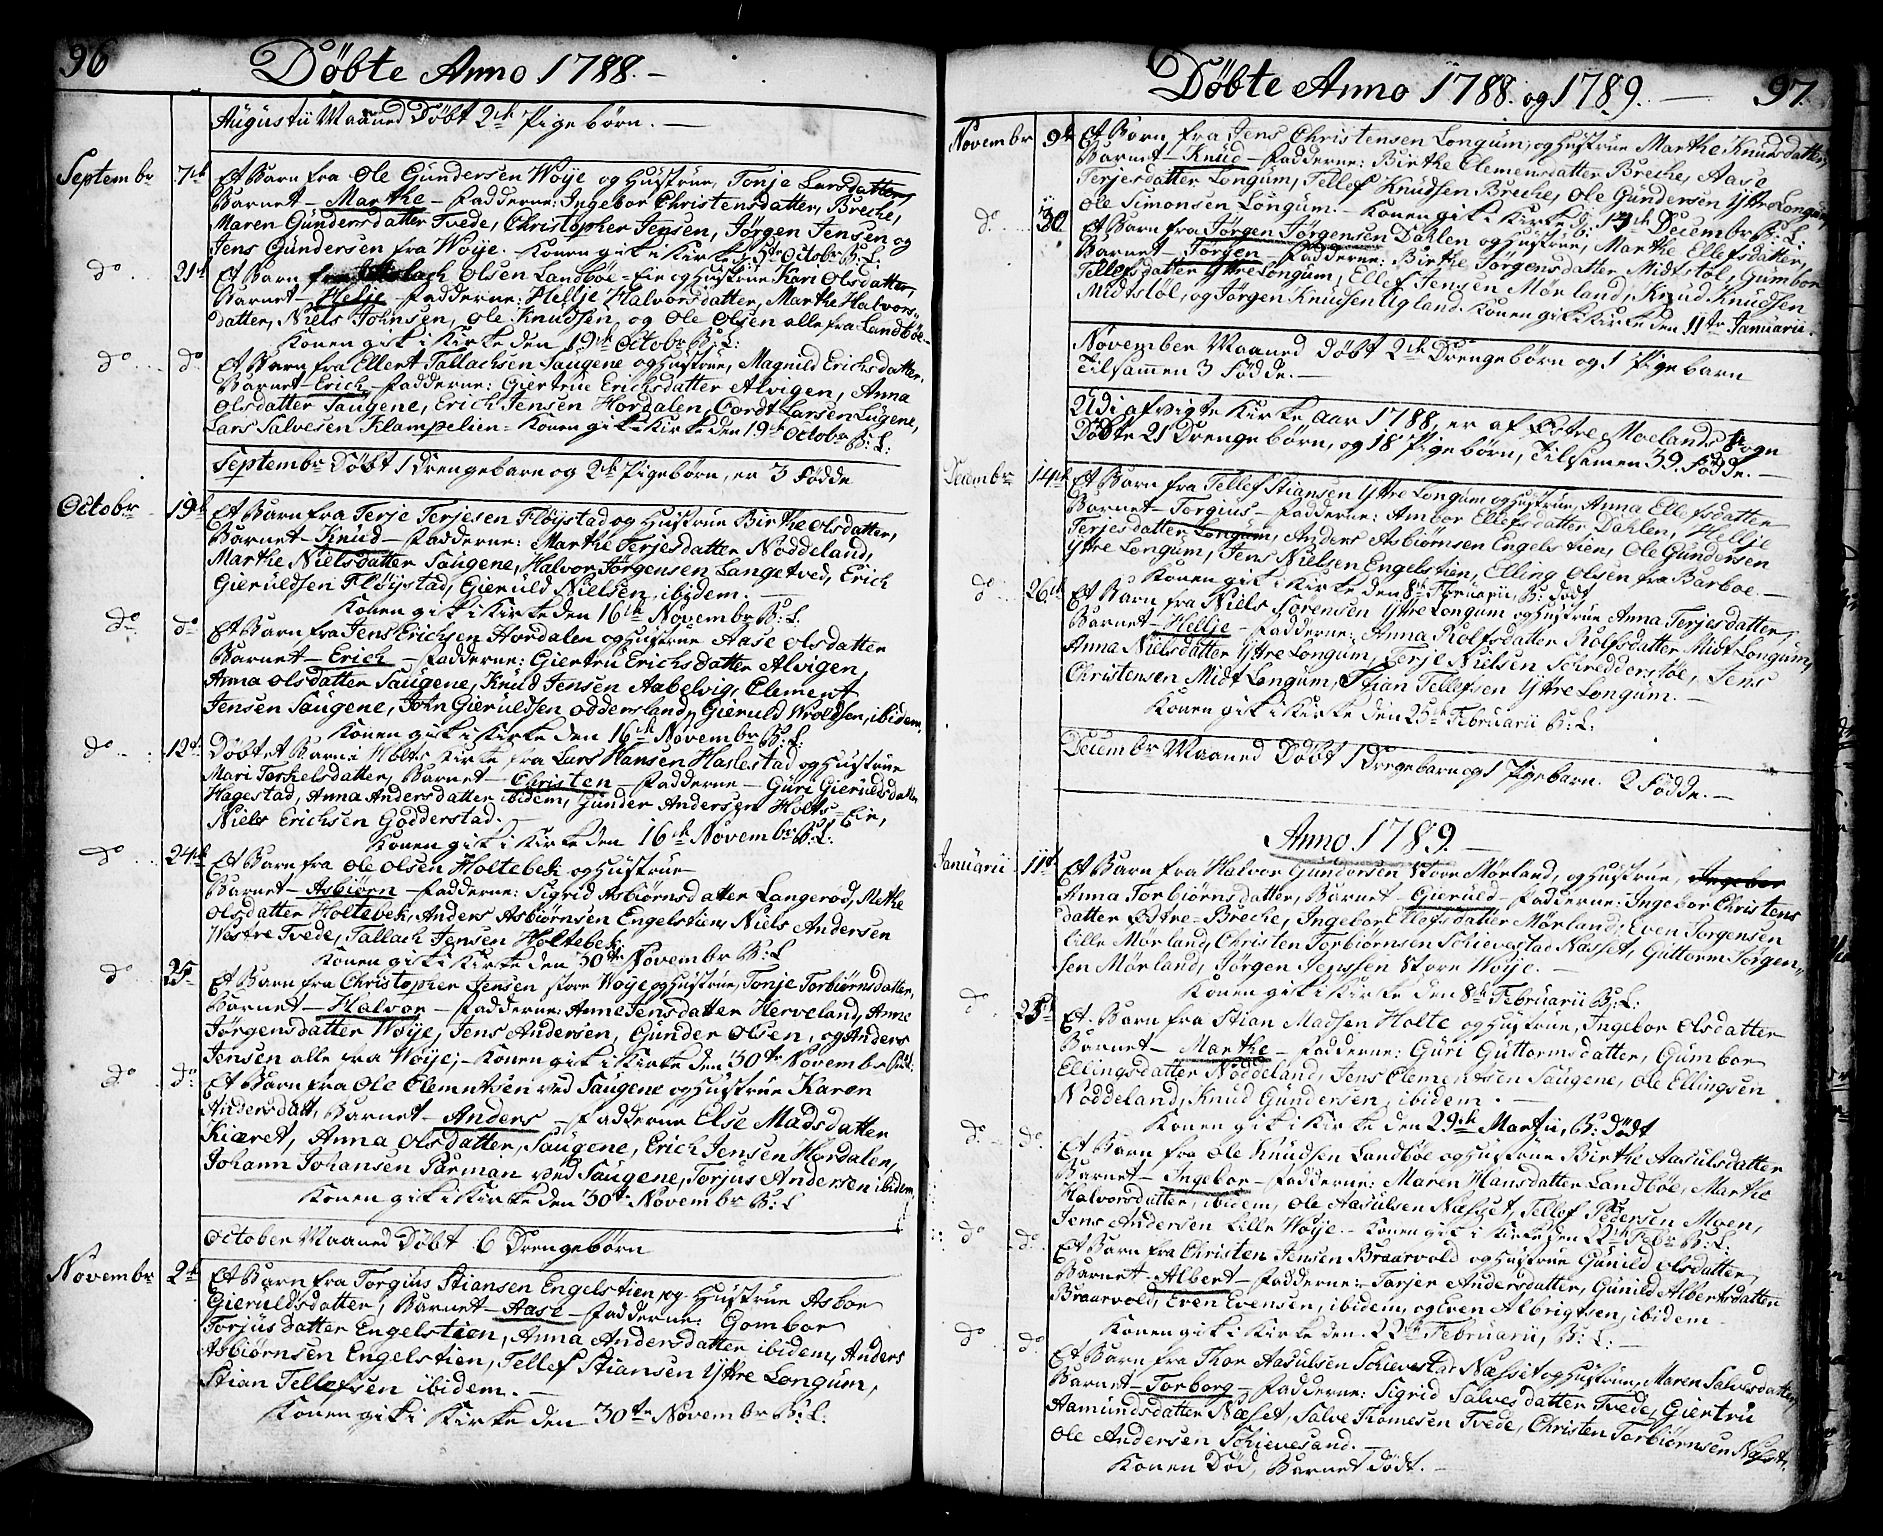 96
Döbte Anno 1788.
Augustii Maaned Döbt 2de Pigebörn.
Septembr 7de Et Barn fra Ole Gundersen Woije og Hustrue, Tonje Larsdatter,
Barnet - Marthe - Fadderne: Ingebor Christensdatter, Breche,
Maren Gundersdatter Tvede, Christopher Jensen, Jörgen Jensen og
Jens Gundersen fra Woije. Konen gik i Kirke d. 5te Octobr B: L.
do 21de Et Barn fra Olsen Landböe-Eie og Hustrue Kari Olsdatter,
Barnet - Helje - Fadderne: Hellje Halvorsdatter, Marthe Halvors-
datter, Niels Johnsen, Ole Knudsen, og Ole Olsen alle fra Landböe
Konen gik i Kirke den 19de Octobr B: L:
do do Et Barn fra Ellert Tallachsen Saugene og Hustrue, Magnild Erichsdatter,
Barnet - Erich - Fadderne: Giertrue Erichsdatter Alvigen, Anna
Olsdatter Saugene, Erich Jensen Hordalen, Cordt Larsen Lugene,
Lars Salvesen Klampelien - Konen gik i Kirke den 19de Octobr B: L:
Septembr Döbt 1 Drengebarn og 2de Pigebörn, er 3 Födde
Octobr 19de Et Barn fra Terje Terjesen Flöystad og Hustrue Birthe Olsdatter,
Barnet - Knud - Fadderne: Marthe Terjesdatter Nöddeland,
Marthe Nielsdatter Saugene, Halvor Jörgensen Langetved, Erich
Gieruldsen Flöijstad, Gieruld Nielsen, ibidem.
Konen gik i Kirke den 16de Novembr B: L.
do do Et Barn fra Jens Erichsen Hordalen og Hustrue Aase Olsdatter
Barnet - Erich - Fadderne: Giertru Erichsdatter Alvigen,
Anna Olsdatter Saugene, Knud Jensen Aabelvig, Clement
Jensen Saugene, John Gieruldsen Oddersland, Gieruld Wroldsen, ibidem
Konen gik i Kirke den 16de Novembr B: L:
do 12te Döbt et Barn i Holts Kirke fra Lars Hansen Haslestad og Hustrue
Mari Terkelsdatter, Barnet - Christen - Fadderne - Guri Gieruldsdatter
Hagestad, Anna Andersdatter ibidem, Gunder Andersen Holts-Eie,
Niels Erichsen Godderstad.
Konen gik i Kirke den 16de Novembr B: L:
do 24de Et Barn fra Ole Olsen Holtebek og Hustrue
Barnet - Asbiörn - Fadderne: Sigrid Asbiörnsdatter Langeröd, Methe
Olsdatter Holtebek, Anders Asbiörnsen Engelstien, Niels Andersen
Westre Tvede, Tallach Jensen Holtebek.
Konen gik i Kirke den 30te Novembr B: L
do 25 Et Barn fra Christopher Jensen store Woije og Hustrue, Tonje Torbiörnsdatter,
Barnet - Halvor - Fadderne: Anne Jensdatter Herveland, Anne
Jörgensdatter Woije, Jens Andersen, Gunder Olsen, og Anders
Jensen alle fra Woije; - Konen gik i Kirke den 30te Novembr B: L:
do do Et Barn fra Ole Clemmtsen ved Saugene og Hustrue Karen
Andersdatt, Barnet - Anders - Fadderne Else Madsdatter
Kiæret, Anna Olsdatter, Saugene, Erich Jensen Hordalen,
Johann Johansen Parman ved Saugene, Torjus Andersen ibidem,
Konen gik i Kirke den 30te Novembr B: L
October Maaned Döbt 6 Drengebörn
Novembr 2de Et Barn fra Torgius Stiansen Engelstien og Hustrue Asbor
Gieruldsdatter, Barnet - Aase - Fadderne: Gombor
Torjusdatter Engelstien, Anna Andersdatter ibidem, Anders
Asbiörnsen Engelstien, Tellef Stiansen Yttre Longum,
Stian Tellefsen ibidem.
Konen gik i Kirke den 30te Novembr B: L:
Döbte Anno 1788. og 1789.
97.
Novembr 9de Et Barn fra Jens Christensen Longum, og Hustrue Marthe Knudsdatter,
Barnet - Knud - Fadderne: Birthe Clemensdatter Breche, Aase
Terjesdatter Longum, Tellef Knudsen Breche, Ole Gundersen Yttre Longum,
Ole Simonsen Longum. - Konen gik i Kirke d: 14de Decembr B: L:
do 30 Et Barn fra Jörgen Jörgensen Dahlen og Hustrue, Marthe Ellefsdatter,
Barnet - Jörgen - Fadderne: Birthe Jörgensdatter Midtstöl, Gumbor
Tellefsdatter Yttre Longum, Ellef Jensen Mörland, Knud Knudsen
Midtstöl, og Jörgen Knudsen Ugland. Konen gik i Kirke den 11te Januarii
November Maaned Döbt 2de Drengebörn og 1 Pigebarn
Tilsammen 3 Födde.
Udi afvigte Kirke Aar 1788, er af Östre Moelands Sogn
Döbte 21 Drengebörn, og 18 Pigebörn, Tilsamen 39. Födde.
Decembr 14de Et Barn fra Tellef Stiansen Yttre Longum og Hustrue, Anna Ellefsdatter
Barnet - Torgius - Fadderne: Ambor Ellefsdatter Dahlen, Hellje
Terjesdatter Longum, Anders Asbiörnsen Engelstien, Ole Gundersen
Yttre Longum, Jens Nielsen Engelstien, Elling Olsen fra Barboe.
Konen gik i Kirke den 8de Februarii, B: Födt
do 26de Et Barn fra Niels Sörensen Yttre Longum og Hustrue Anna Terjesdatter,
Barnet - Hellje - Fadderne: Anna Rolfsdatter Rolfsdatter Midt Longum,
Anna Nielsdatter Yttre Longum, Terje Nielsen Schreddersöe, Jens
Christensen Midt Longum, Stian Tellefsen Yttre Longum.
Konen gik i Kirke den 25de Februarii B: L:
Decembr Maaned Döbt 1 Drengebarn og 1 Pigebarn. 2 Födde.
Anno 1789.
Januarii 11te Et Barn fra Halvor Gundersen Store Mörland, og Hustrue, Ingebor
Anna Torbiörnsdatter, Barnet - Gieruld - Fadderne: Ingebor Christens
datter Östre-Breche, Ingebor Ellefsdatter Mörland, Even Jorgensen
Lille Mörland, Christen Torbiörnsen Schievestad Næsset, Guttorm Jörgen
sen Mörland, Jörgen Jenssen Store Woije.
Konen gik i Kirke den 8de Februarii B: L:
do 25de Et Barn fra Stian Madsen Holte og Hustrue, Ingebor Olsdatter
Barnet - Marthe - Fadderne: Guri Guttormsdatter, Gumbor
Ellingsdatter Nöddeland, Jens Clementsen Saugene, Ole Ellingsen
Nöddeland, Knud Gundersen, ibidem.
Konen gik i Kirke den 29de Martii, B: Födt
do do Et Barn fra Ole Knudsen Landböe og Hustrue Birthe Aasulsdatter
Barnet - Ingebor - Fadderne: Maren Hansdatter Landböe, Marthe
Halvorsdatter, ibidem, Ole Aasulsen Næsset, Tellef Pedersen Moen,
Jens Andersen Lille Woije. - Konen gik i Kirke den 22de Febr B: L:
do do Et Barn fra Christen Jensen Braarvold og Hustrue Gunild Olsdatter,
Barnet - Albert - Fadderne: Tarjer Andersdatter, Gunild Albertsdatter
Braarvold, Even Evensen, ibidem, og Even Albrigtsen, ibidem
Konen gik i Kirke den 22de Februarii, B: L:
do do Et Barn fra Thor Aasulsen Schievestad Næsset og Hustrue, Maren Salvesdatter
Barnet - Torborg - Fadderne: Sigrid Salvesdatter Tvede, Giertru
Aamundsdatter Næset, Salve Thomesen Tvede, Christen Torbiörnsen Næset,
Ole Andersen Schievesand.
Konen Död, Barnet Födt.